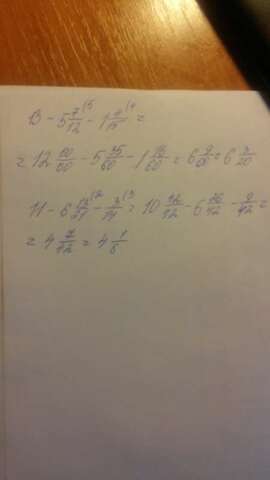 13 - 5 7/12 (5 - 1 4/15 (4 =
= 12 60/60 - 5 35/60 - 1 16/60 = 6 9/60 = 6 3/20
11 - 6 13/21 (2 - 3/14 (3 = 10 42/42 - 6 26/42 - 9/42 =
= 4 7/42 = 4 1/6